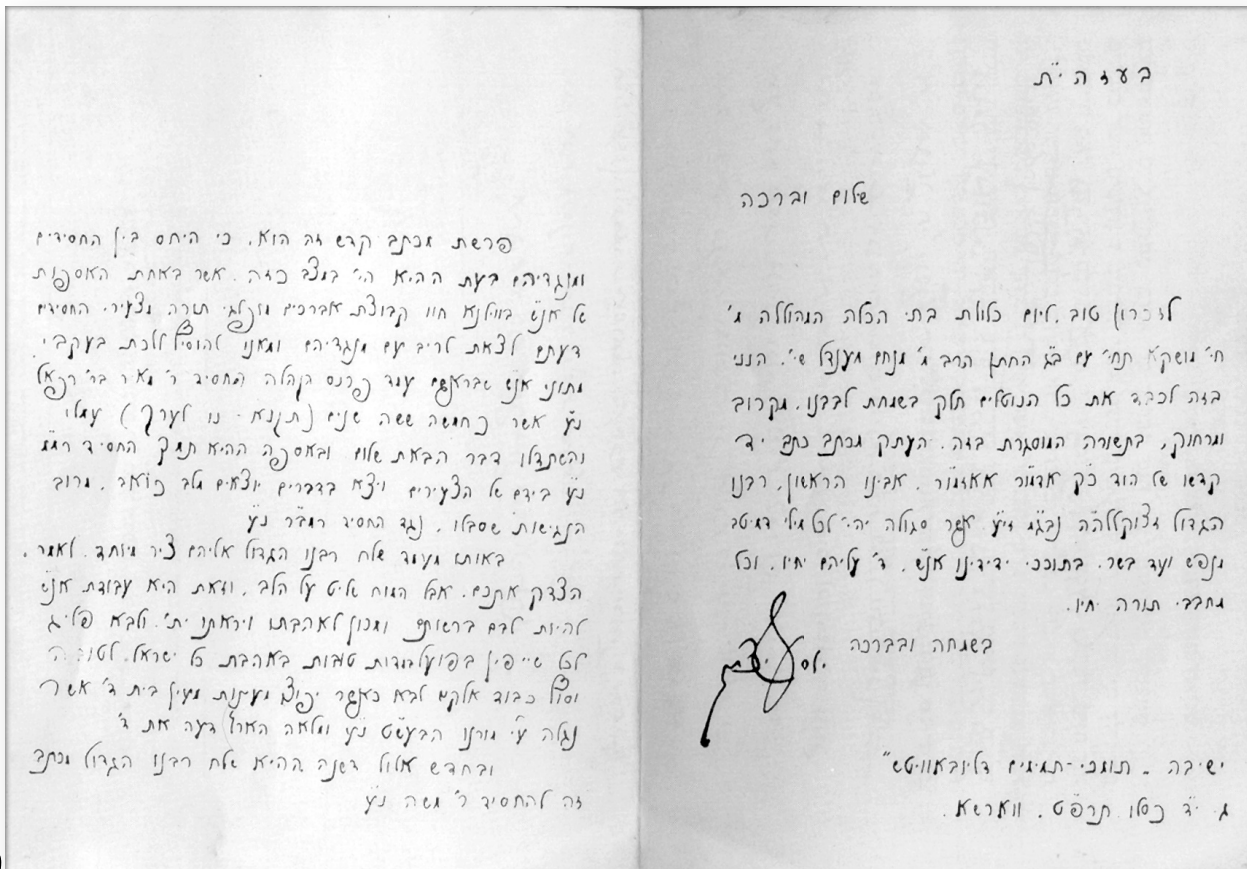 בעזה"ת
שלום וברכה
לזכרון טוב, ליום כלולת בתי הכלה המהוללה מ'
חי' מושקא תחי' עם ב"ג החתן הרב מ' מנחם מענדל שי', הנני
בזה לכבד את כל הנוטלים חלק בשמחת לבבנו, מקרוב
ומרחוק, בתשורה המוסגרת בזה. העתק מכתב כתב יד
קדשו של הוד כ"ק אדמו"ר אאזמו"ר, אבינו הראשון, רבנו
הגדול זצוקללה"ה נבג"מ זי"ע. אשר סגולה יהי' לכל מילי דמיטב
מנפש ועד בשר. בתוככי ידידינו אנ"ש, ד' עליהם יחיו, וכל
מחבבי תורה יחיו.
בשמחה ובברכה
יוסף יצחק
ישיבה „תומכי-תמימים דליובאוויטש"
ג. י"ד כסלו תרפ"ט. ווארשא.
פרשת מכתב קדש זה הוא, כי היחס בין החסידים
ומנגדיהם בעת ההיא הי' במצב כזה, אשר באחת האספות
של אנ"ש בווילנא חוו קבוצת אברכים מופלגי תורה מצעירי החסידים
דעתם לצאת לריב עם מנגדיהם ומאנו להוסיף ללכת בעקבי
מתוני אנ"ש שבראשם עמד פרנס הקהלה החסיד ר' מאיר בר' רפאל
נ"ע אשר כחמשה ששה שנים (תקנא - נו לערך) עמלו
והשתדלו דבר הבאת שלום ובאספה ההיא תמך החסיד רמ"מ
נ"ע בידם של הצעירים ויצא בדברים יוצאים מלב כואב, מרוב
הנגישות שסבלו, נגד החסיד רמב"ר נ"ע
באותו מעמד שלח רבנו הגדול אליהם ציר מיוחד, לאמר,
הצדק אתכם, אבל המוח שליט על הלב, וזאת היא עבודת אנ"ש
להיות לבם ברשותם ומכון לאהבתו ויראתו ית', ולבא פליג
לכל שייפין בפועל עבודות טובות באהבת כל ישראל, לטובה
וסוף כבוד אלקים לבא כאשר יפוצו מעינות מעין בית ד' אשר
נגלה ע"י מורנו הבעש"ט נ"ע ומלאה הארץ דעה את ד'
ובחדש אלול דשנה ההיא שלח רבנו הגדול מכתב
זה להחסיד ר' משה נ"ע